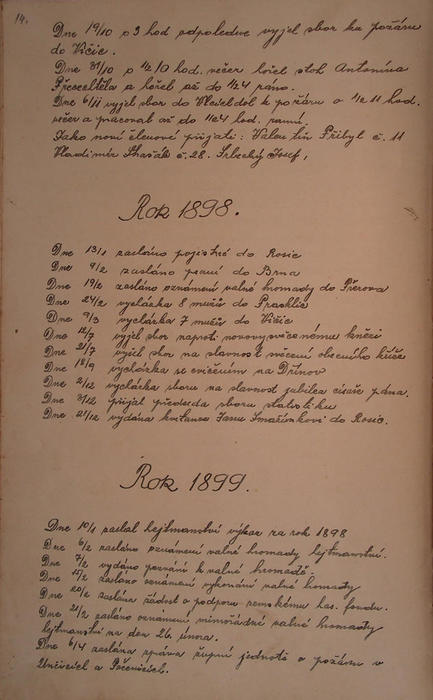 14.
Dne 19/10 o 3 hod odpoledne vyjel sbor ku požáru
do Vičic.
Dne 31/10 o 1/2 10 hod. večer hořel stoh Antonína
a hořel až do 1/2 4 ráno.
Dne 6/11 vyjel sbor do k požáru o 1/2 11 hod.
večer a pracoval až do 1/2 4 hod. ranní.
Jako noví členové přijati: Valentin Přibyl č. 11
Vladimír č. 28. Srbecký Josef,
Rok 1898.
Dne 13/1 zasláno pojistné do Rosic
Dne 9/2 zasláno psaní do Brna
Dne 19/2 zasláno oznámení valné hromady do Přerova
Dne 24/2 vycházka 8 mužů do
Dne 9/3 vycházka 7 mužů do Vičic
Dne 12/7 vyjel sbor naproti novovysvěcenému knězi
Dne 21/7 vyjel sbor na slavnost svěcení obecního kříže
Dne 18/9 vycházka se cvičením na Dřínov
Dne 2/12 vycházka sboru na slavnost jubilea císaře pána.
Dne 3/12 přijal předseda sboru statistiku
Dne 21/12 vydána kvitance Janu do Rosic.
Rok 1899.
Dne 10/1 zaslal hejtmanství výkaz za rok 1898
Dne 6/2 zasláno oznámení valné hromady hejtmanství.
Dne 7/2 vydáno pozvání k valné hromadě.
Dne 12/2 zasláno oznámení vykonání valné hromady
Dne 20/2 zaslána žádost o podporu zemskému has. fondu.
Dne 21/2 zasláno oznámení mimořádné valné hromady
hejtmanství na den 26. února.
Dne 6/4 zaslána zpráva župní jednotě o požáru v
a